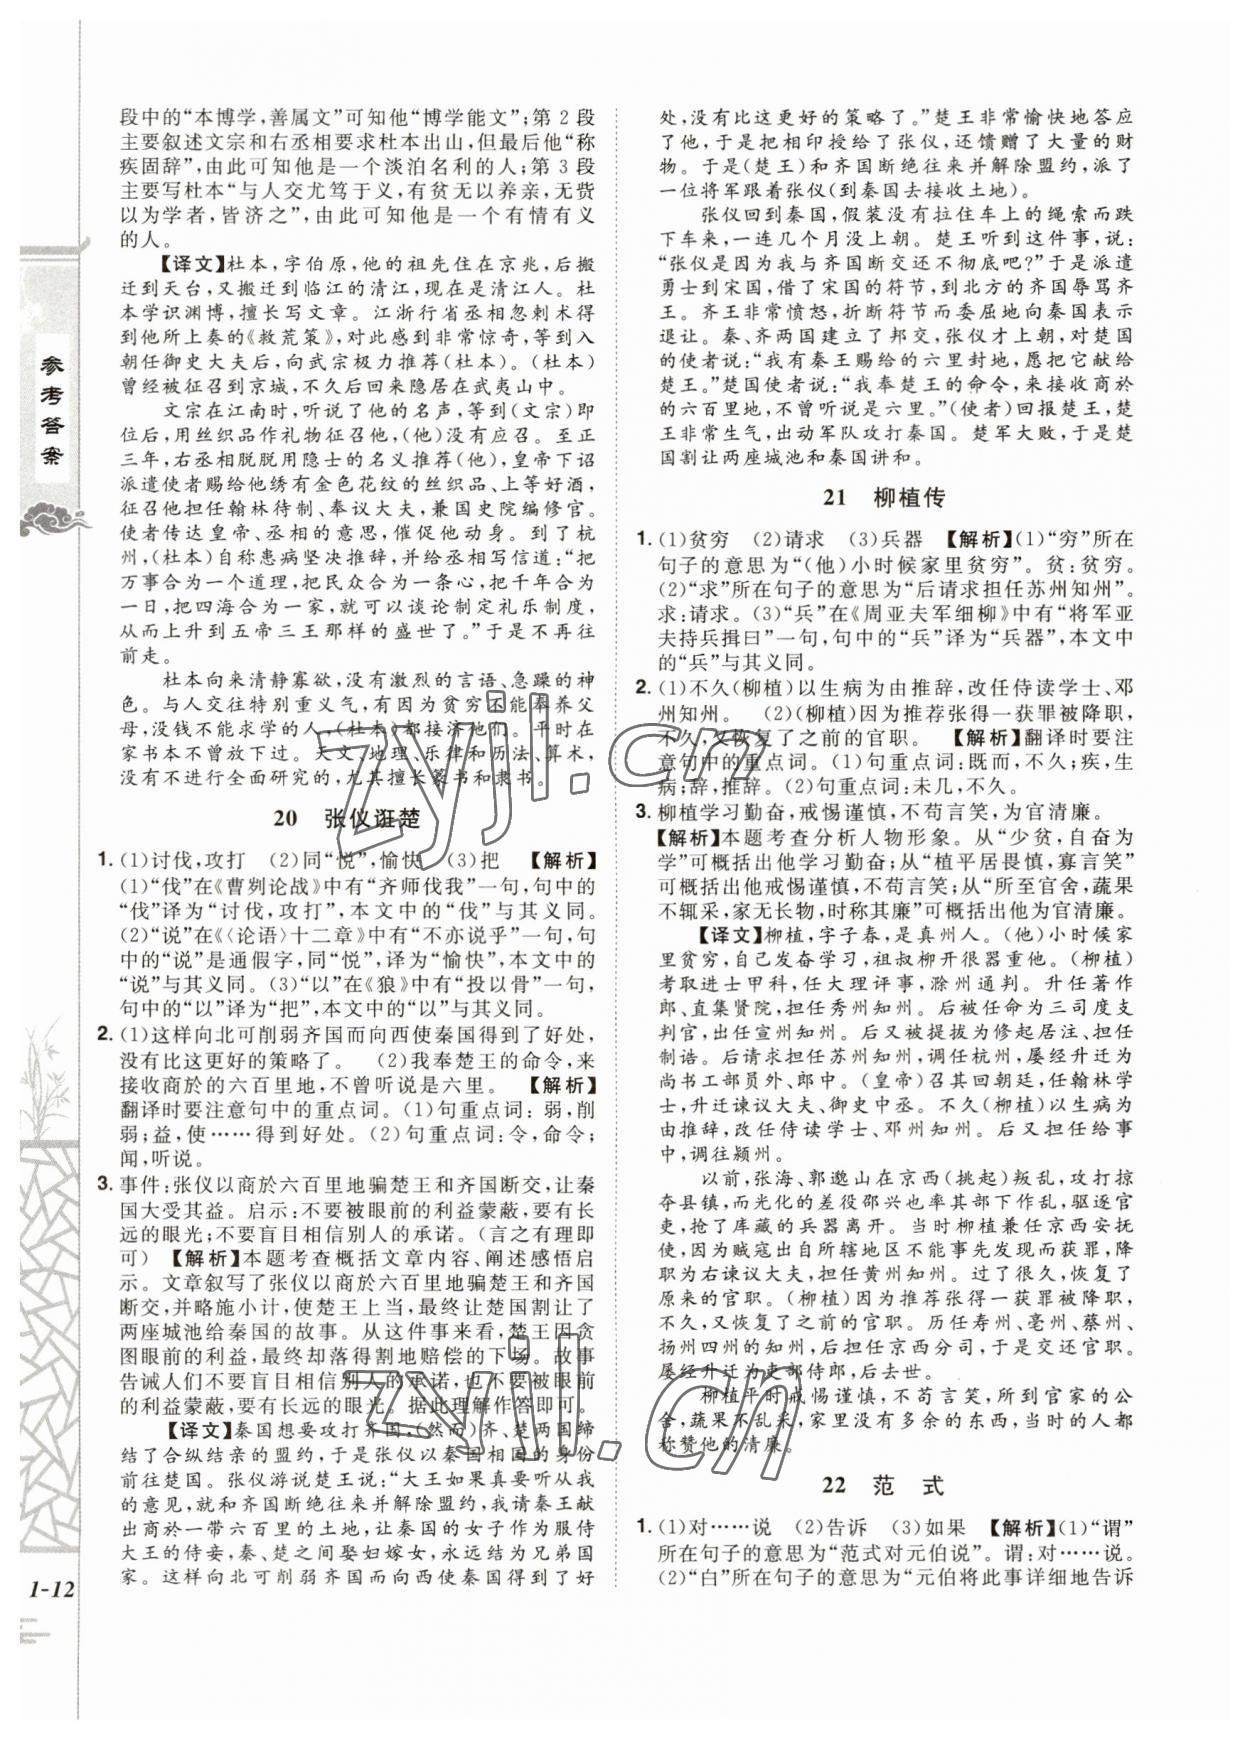 段中的“本博学,善属文”可知他“博学能文”;第2段
主要叙述文宗和右丞相要求杜本出山,但最后他“称
疾固辞”,由此可知他是一个淡泊名利的人;第3段
主要写杜本“与人交尤笃于义,有贫无以养亲,无赀
以为学者,皆济之”,由此可知他是一个有情有义
的人。
【译文】杜本,字伯原,他的祖先住在京兆,后搬
迁到天台,又搬迁到临江的清江,现在是清江人。杜
本学识渊博,擅长写文章。江浙行省丞相忽剌术得
到他所上奏的《救荒策》,对此感到非常惊奇,等到入
朝任御史大夫后,向武宗极力推荐(杜本)。(杜本)
曾经被征召到京城,不久后回来隐居在武夷山中。
文宗在江南时,听说了他的名声,等到(文宗)即
位后,用丝织品作礼物征召他,(他)没有应召。至正
三年,右丞相脱脱用隐士的名义推荐(他),皇帝下诏
派遣使者赐给他绣有金色花纹的丝织品、上等好酒,
征召他担任翰林待制、奉议大夫,兼国史院编修官。
使者传达皇帝、丞相的意思,催促他动身。到了杭
州,(杜本)自称患病坚决推辞,并给丞相写信道:“把
万事合为一个道理,把民众合为一条心,把千年合为
一日,把四海合为一家,就可以谈论制定礼乐制度,
从而上升到五帝三王那样的盛世了。”于是不再往
前走。
杜本向来清静寡欲,没有激烈的言语、急躁的神
色。与人交往特别重义气,有因为贫穷不能奉养父
母,没钱不能求学的人,(杜本)都接济他们。平时在
家书本不曾放下过。天文、地理、乐律和历法、算术,
没有不进行全面研究的,尤其擅长篆书和隶书。
20 张仪诳楚
1. (1)讨伐,攻打 (2)同“悦”,愉快 (3)把 【解析】
(1)“伐”在《曹刿论战》中有“齐师伐我”一句,句中的
“伐”译为“讨伐,攻打”,本文中的“伐”与其义同。
(2)“说”在《〈论语〉十二章》中有“不亦说乎”一句,句
中的“说”是通假字,同“悦”,译为“愉快”,本文中的
“说”与其义同。(3)“以”在《狼》中有“投以骨”一句,
句中的“以”译为“把”,本文中的“以”与其义同。
2. (1)这样向北可削弱齐国而向西使秦国得到了好处,
没有比这更好的策略了。 (2)我奉楚王的命令,来
接收商於的六百里地,不曾听说是六里。 【解析】
翻译时要注意句中的重点词。(1)句重点词:弱,削
弱;益,使……得到好处。(2)句重点词:令,命令;
闻,听说。
3. 事件:张仪以商於六百里地骗楚王和齐国断交,让秦
国大受其益。启示:不要被眼前的利益蒙蔽,要有长
远的眼光;不要盲目相信别人的承诺。(言之有理即
可) 【解析】本题考查概括文章内容、阐述感悟启
示。文章叙写了张仪以商於六百里地骗楚王和齐国
断交,并略施小计,使楚王上当,最终让楚国割让了
两座城池给秦国的故事。从这件事来看,楚王因贪
图眼前的利益,最终却落得割地赔偿的下场。故事
告诫人们不要盲目相信别人的承诺,不要被眼前
的利益蒙蔽,要有长远的眼光。据此理解作答即可。
【译文】秦国想要攻打齐国,(然而)齐、楚两国缔
结了合纵结亲的盟约,于是张仪以秦国相国的身份
前往楚国。张仪游说楚王说:“大王如果真要听从我
的意见,就和齐国断绝往来并解除盟约,我请秦王献
出商於一带六百里的土地,让秦国的女子作为服侍
大王的侍妾,秦、楚之间娶妇嫁女,永远结为兄弟国
家。这样向北可削弱齐国而向西使秦国得到了好
处,没有比这更好的策略了。”楚王非常愉快地答应
了他,于是把相印授给了张仪,还馈赠了大量的财
物。于是(楚王)和齐国断绝往来并解除盟约,派了
一位将军跟着张仪(到秦国去接收土地)。
张仪回到秦国,假装没有拉住车上的绳索而跌
下车来,一连几个月没上朝。楚王听到这件事,说:
“张仪是因为我与齐国断交还不彻底吧?”于是派遣
勇士到宋国,借了宋国的符节,到北方的齐国辱骂齐
王。齐王非常愤怒,折断符节而委屈地向秦国表示
退让。秦、齐两国建立了邦交,张仪才上朝,对楚国
的使者说:“我有秦王赐给的六里封地,愿把它献给
楚王。”楚国使者说:“我奉楚王的命令,来接收商於
的六百里地,不曾听说是六里。”(使者)回报楚王,楚
王非常生气,出动军队攻打秦国。楚军大败,于是楚
国割让两座城池和秦国讲和。
21 柳植传
1. (1)贫穷 (2)请求 (3)兵器 【解析】(1)“穷”所在
句子的意思为“(他)小时候家里贫穷”。贫:贫穷。
(2)“求”所在句子的意思为“后请求担任苏州知州”。
求:请求。(3)“兵”在《周亚夫军细柳》中有“将军亚
夫持兵揖曰”一句,句中的“兵”译为“兵器”,本文中
的“兵”与其义同。
2. (1)不久(柳植)以生病为由推辞,改任侍读学士、邓
州知州。 (2)(柳植)因为推荐张得一获罪被降职,
不久,又恢复了之前的官职。 【解析】翻译时要注
意句中的重点词。(1)句重点词:既而,不久;疾,生
病;辞,推辞。(2)句重点词:未几,不久。
3. 柳植学习勤奋,戒惕谨慎,不苟言笑,为官清廉。
【解析】本题考查分析人物形象。从“少贫,自奋为
学”可概括出他学习勤奋;从“植平居畏慎,寡言笑”
可概括出他戒惕谨慎,不苟言笑;从“所至官舍,蔬果
不辄采,家无长物,时称其廉”可概括出他为官清廉。
【译文】柳植,字子春,是真州人。(他)小时候家
里贫穷,自己发奋学习,祖叔柳开很器重他。(柳植)
考取进士甲科,任大理评事,滁州通判。升任著作
郎、直集贤院,担任秀州知州。后被任命为三司度支
判官,出任宣州知州。后又被提拔为修起居注、担任
制诰。后请求担任苏州知州,调任杭州,屡经升迁为
尚书工部员外、郎中。(皇帝)召其回朝廷,任翰林学
士,升迁谏议大夫、御史中丞。不久(柳植)以生病为
由推辞,改任侍读学士、邓州知州。后又担任给事
中,调往颍州。
以前,张海、郭邈山在京西(挑起)叛乱,攻打掠
夺县镇,而光化的差役邵兴也率其部下作乱,驱逐官
吏,抢了库藏的兵器离开。当时柳植兼任京西安抚
使,因为贼寇出自所辖地区不能事先发现而获罪,降
职为右谏议大夫,担任黄州知州。过了很久,恢复了
原来的官职。(柳植)因为推荐张得一获罪被降职,
不久,又恢复了之前的官职。历任寿州、亳州、蔡州、
扬州四州的知州,担任京西分司,于是交还官职。
屡经升迁为吏部侍郎,后去世。
柳植平时戒惕谨慎,不苟言笑,所到官家的公
舍,蔬果不乱采,家里没有多余的东西,当时的人都
称赞他的清廉。
22 范 式
1. (1)对……说 (2)告诉 (3)如果 【解析】(1)“谓”
所在句子的意思为“范式对元伯说”。谓:对……说。
(2)“白”所在句子的意思为“元伯将此事详细地告诉
参考答案
1-12
zyjl.cn
zyjl.cn